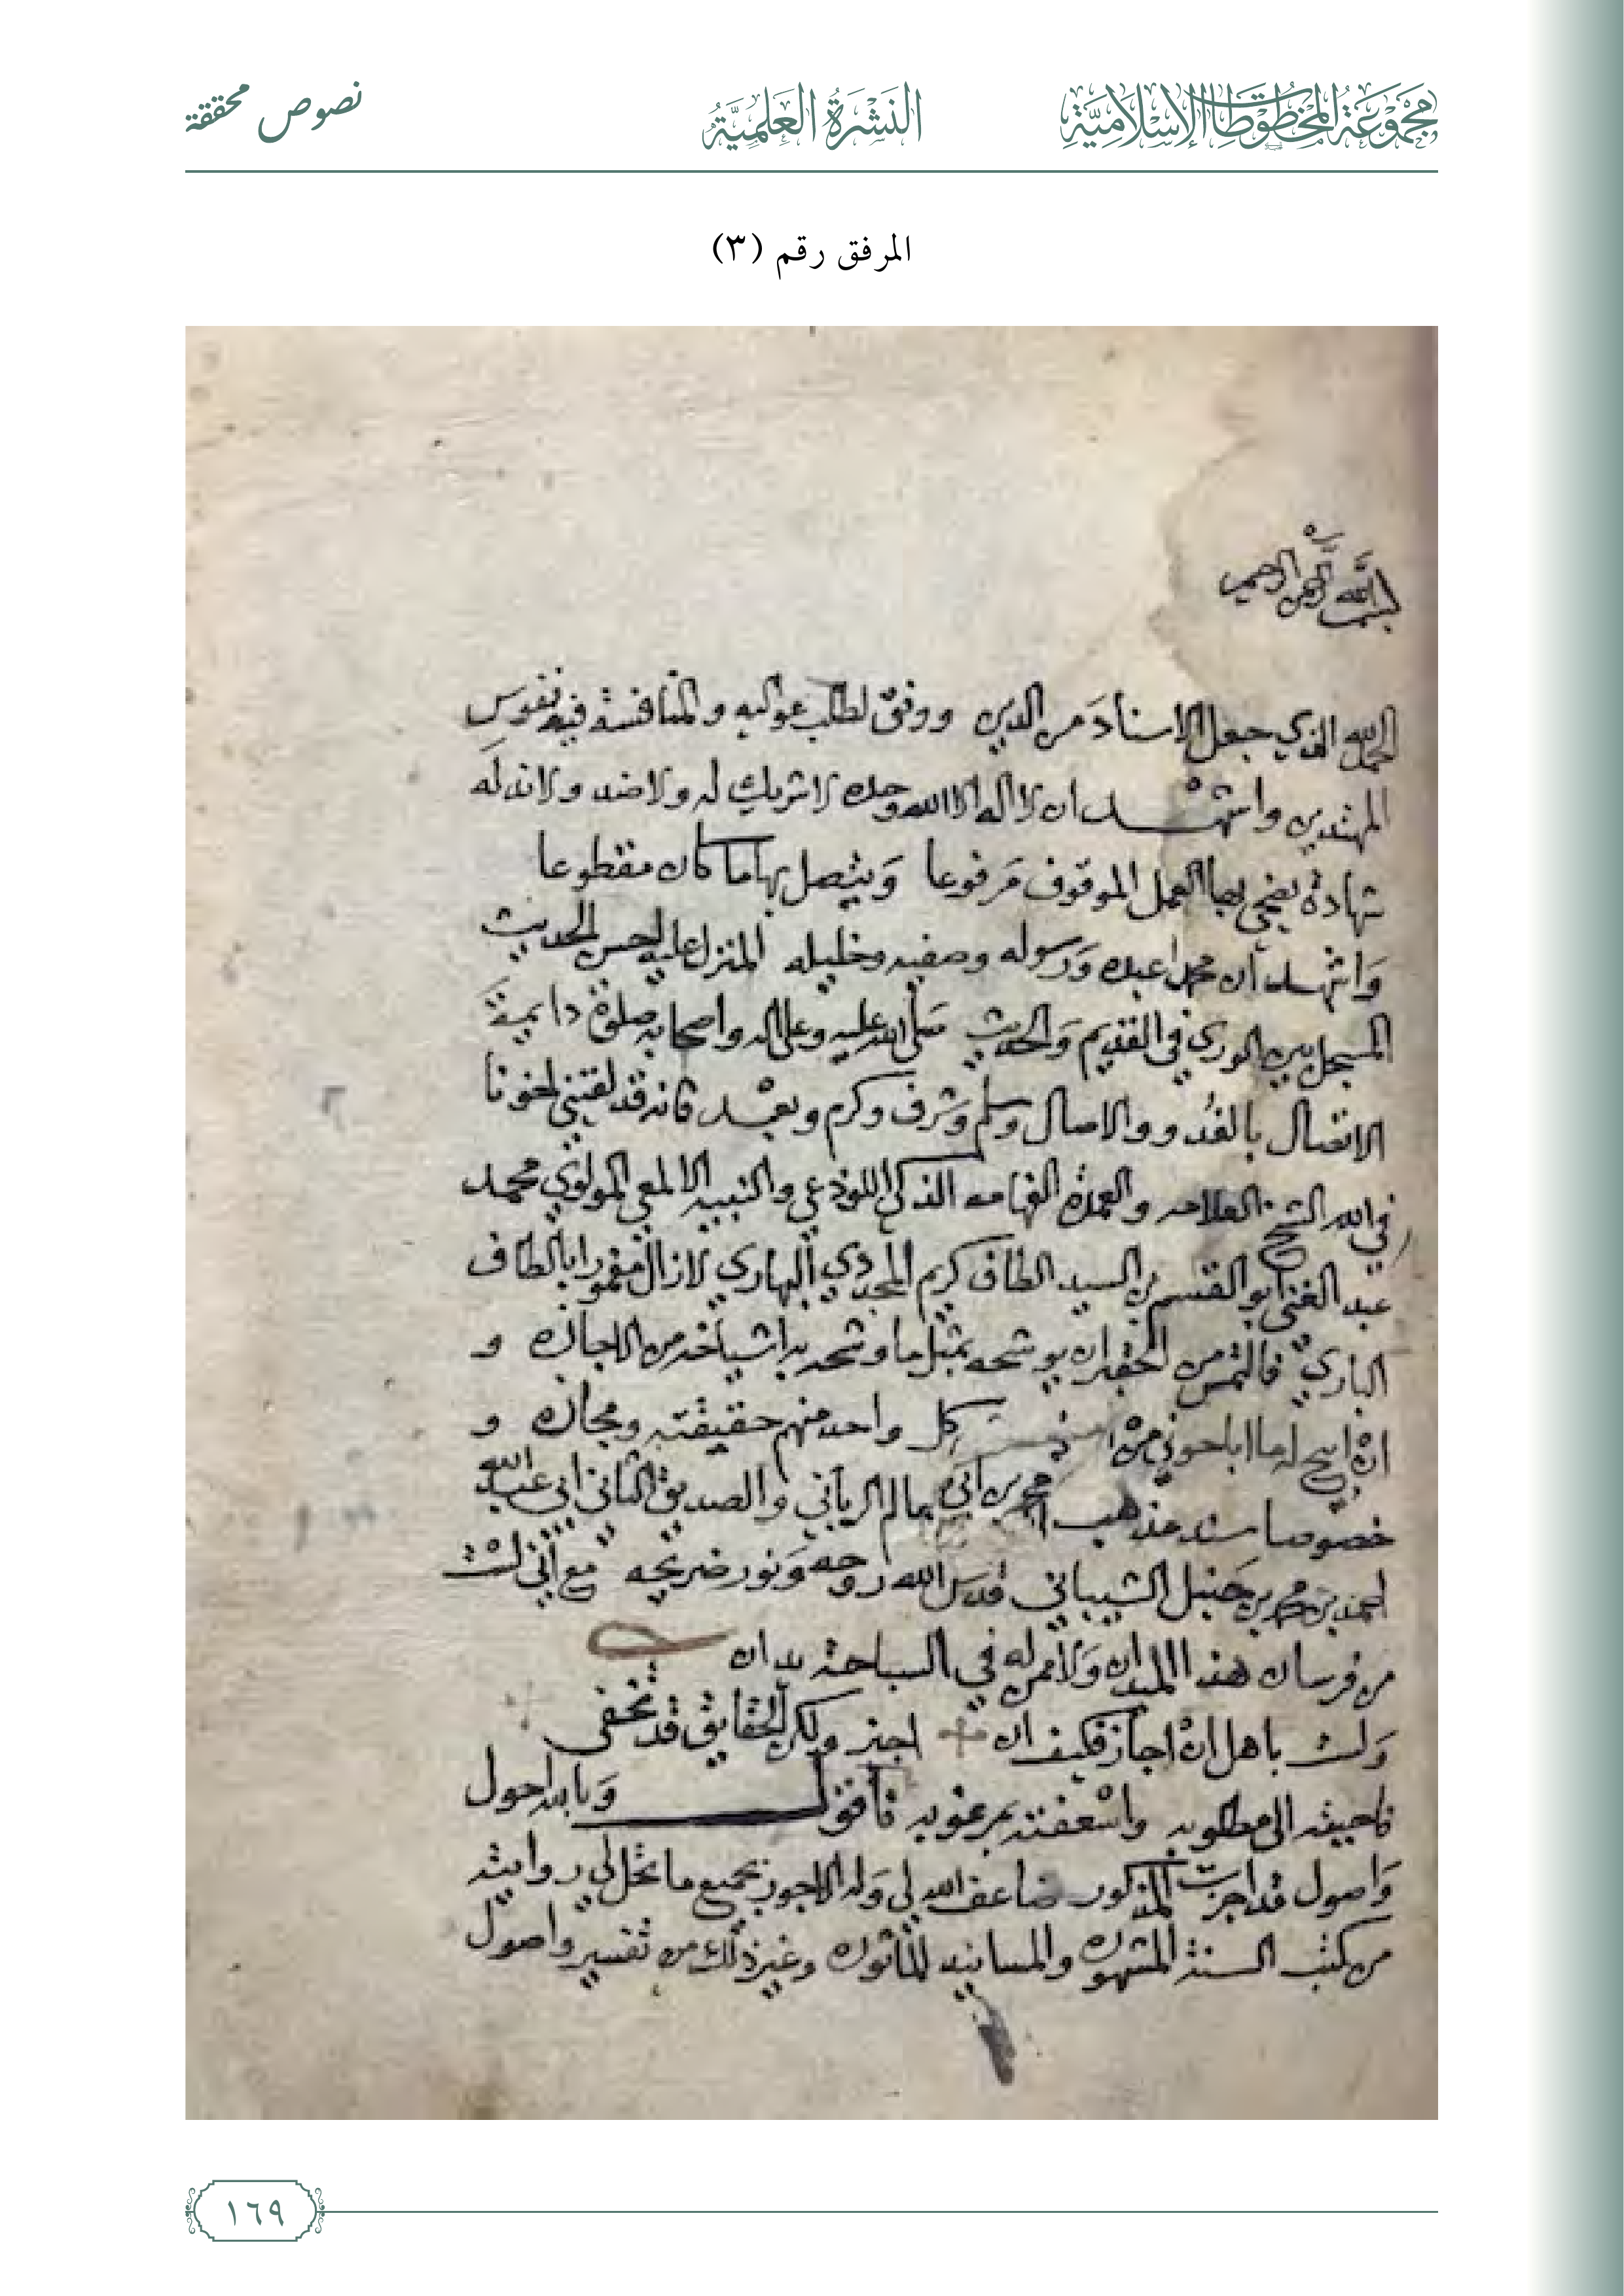 مجموعة المخطوطات الإسلامية
النشرة العلمية
نصوص محققة
المرفق رقم (٣)
بسم الله الرحمن الرحيم
الحمد لله الذي جعل الاسناد من الدين ووفق لطلب عواليه والمنافسة فيه نفوس
المهتدين واشهد ان لا اله الا الله وحده لا شريك له ولا ضد ولا ند له
شهادة يضحي بها العمل الموقوف مرفوعا ويتصل بها ما كان مقطوعا
واشهد ان محمدا عبده ورسوله وصفيه وخليله المنزل عليه احسن الحديث
المبجل بين الورى في القديم والحديث صلى الله عليه وعلى اله واصحابه صلوة دايمة
الاتصال بالغدو والاصال وسلم وشرف وكرم وبعد فانه قد لقتني اخونا
في الله الشيخ العلامه والعمدة الفهامه الذكي اللوذعي والنبيه الالمعي المولوي محمد
عبد الغني ابو القسم بن السيد الطاف كريم المجددي البهاري لا زال مغمورا بالطاف
الباري فالتمس من الحقير ان يوشحه بمثل ما وشحه به اشياخه من الاجازه و
ان ابيح له ما اباحوني من كل واحد منهم حقيقته ومجازه و
خصوصا سند مذهب العالم الرباني والصديق الثاني ابي عبد الله
احمد بن محمد بن حنبل الشيباني قدس الله روحه ونور ضريحه مع اني لست
من فرسان هذا الميدان ولا ممن له في السباحة يدان
ولست باهل ان اجاز فكيف ان اجيز ولكن الحقايق قد تخفى
فاجبته الى مطلوبه واسعفته بمرغوبه فاقول وبالله احول
واصول قد اجزت المذكور ضاعف الله لي وله الاجور بجميع ما تحل لي روايته
من كتب السنة المشهوره والمسانيد المأثوره وغير ذلك من تفسير واصول
١٦٩